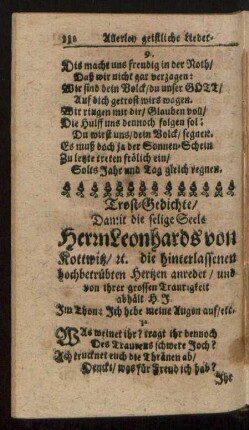 232 Allerley geistliche Lieder.
9.
Dis macht uns freudig in der Noth/
Daß wir nicht gar verzagen:
Wir sind dein Volck/du unser GOTT/
Auf dich getrost wirs wagen.
Wir ringen mit dir/ Glauben voll/
Die Hülff uns dennoch folgen sol:
Du wirst uns/dein Volck/ segnen.
Es muß doch ja der Sonnen-Schein
Zu letzt treten frölich ein/
Solts Jahr und Tag gleich regnen.
Trost-Gedichte/
Damit die selige Seele
Herrn Leonhards von
Kottwitz/ ꝛc. die hinterlassenen
hochbetrübten Hertzen anredet/ und
von ihrer grossen Traurigkeit
abhält H. J.
Im Thon: Ich hebe meine Augen auf/ ꝛc.
1.
WAs weinet ihr? tragt ihr dennoch
Des Traurens schwere Joch?
Ach trucknet euch die Thränen ab/
Denckt/ was für Freud ich hab?
Ihr